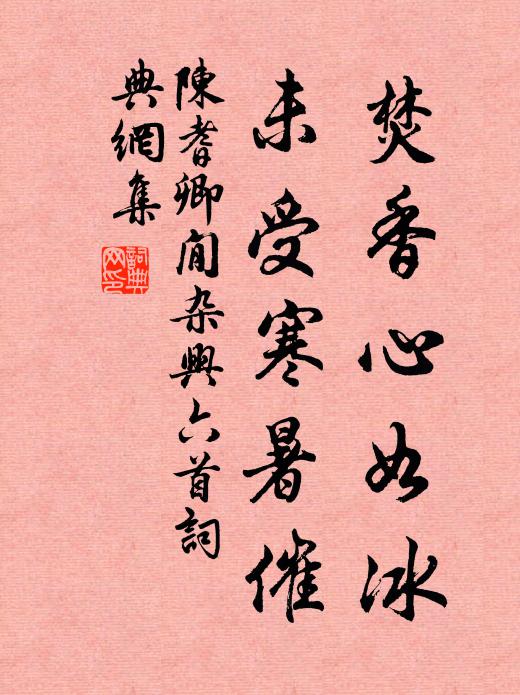 焚香心如冰
未受寒暑催
陳耆卿閒杂興六首詞
典網集
詞典
网印